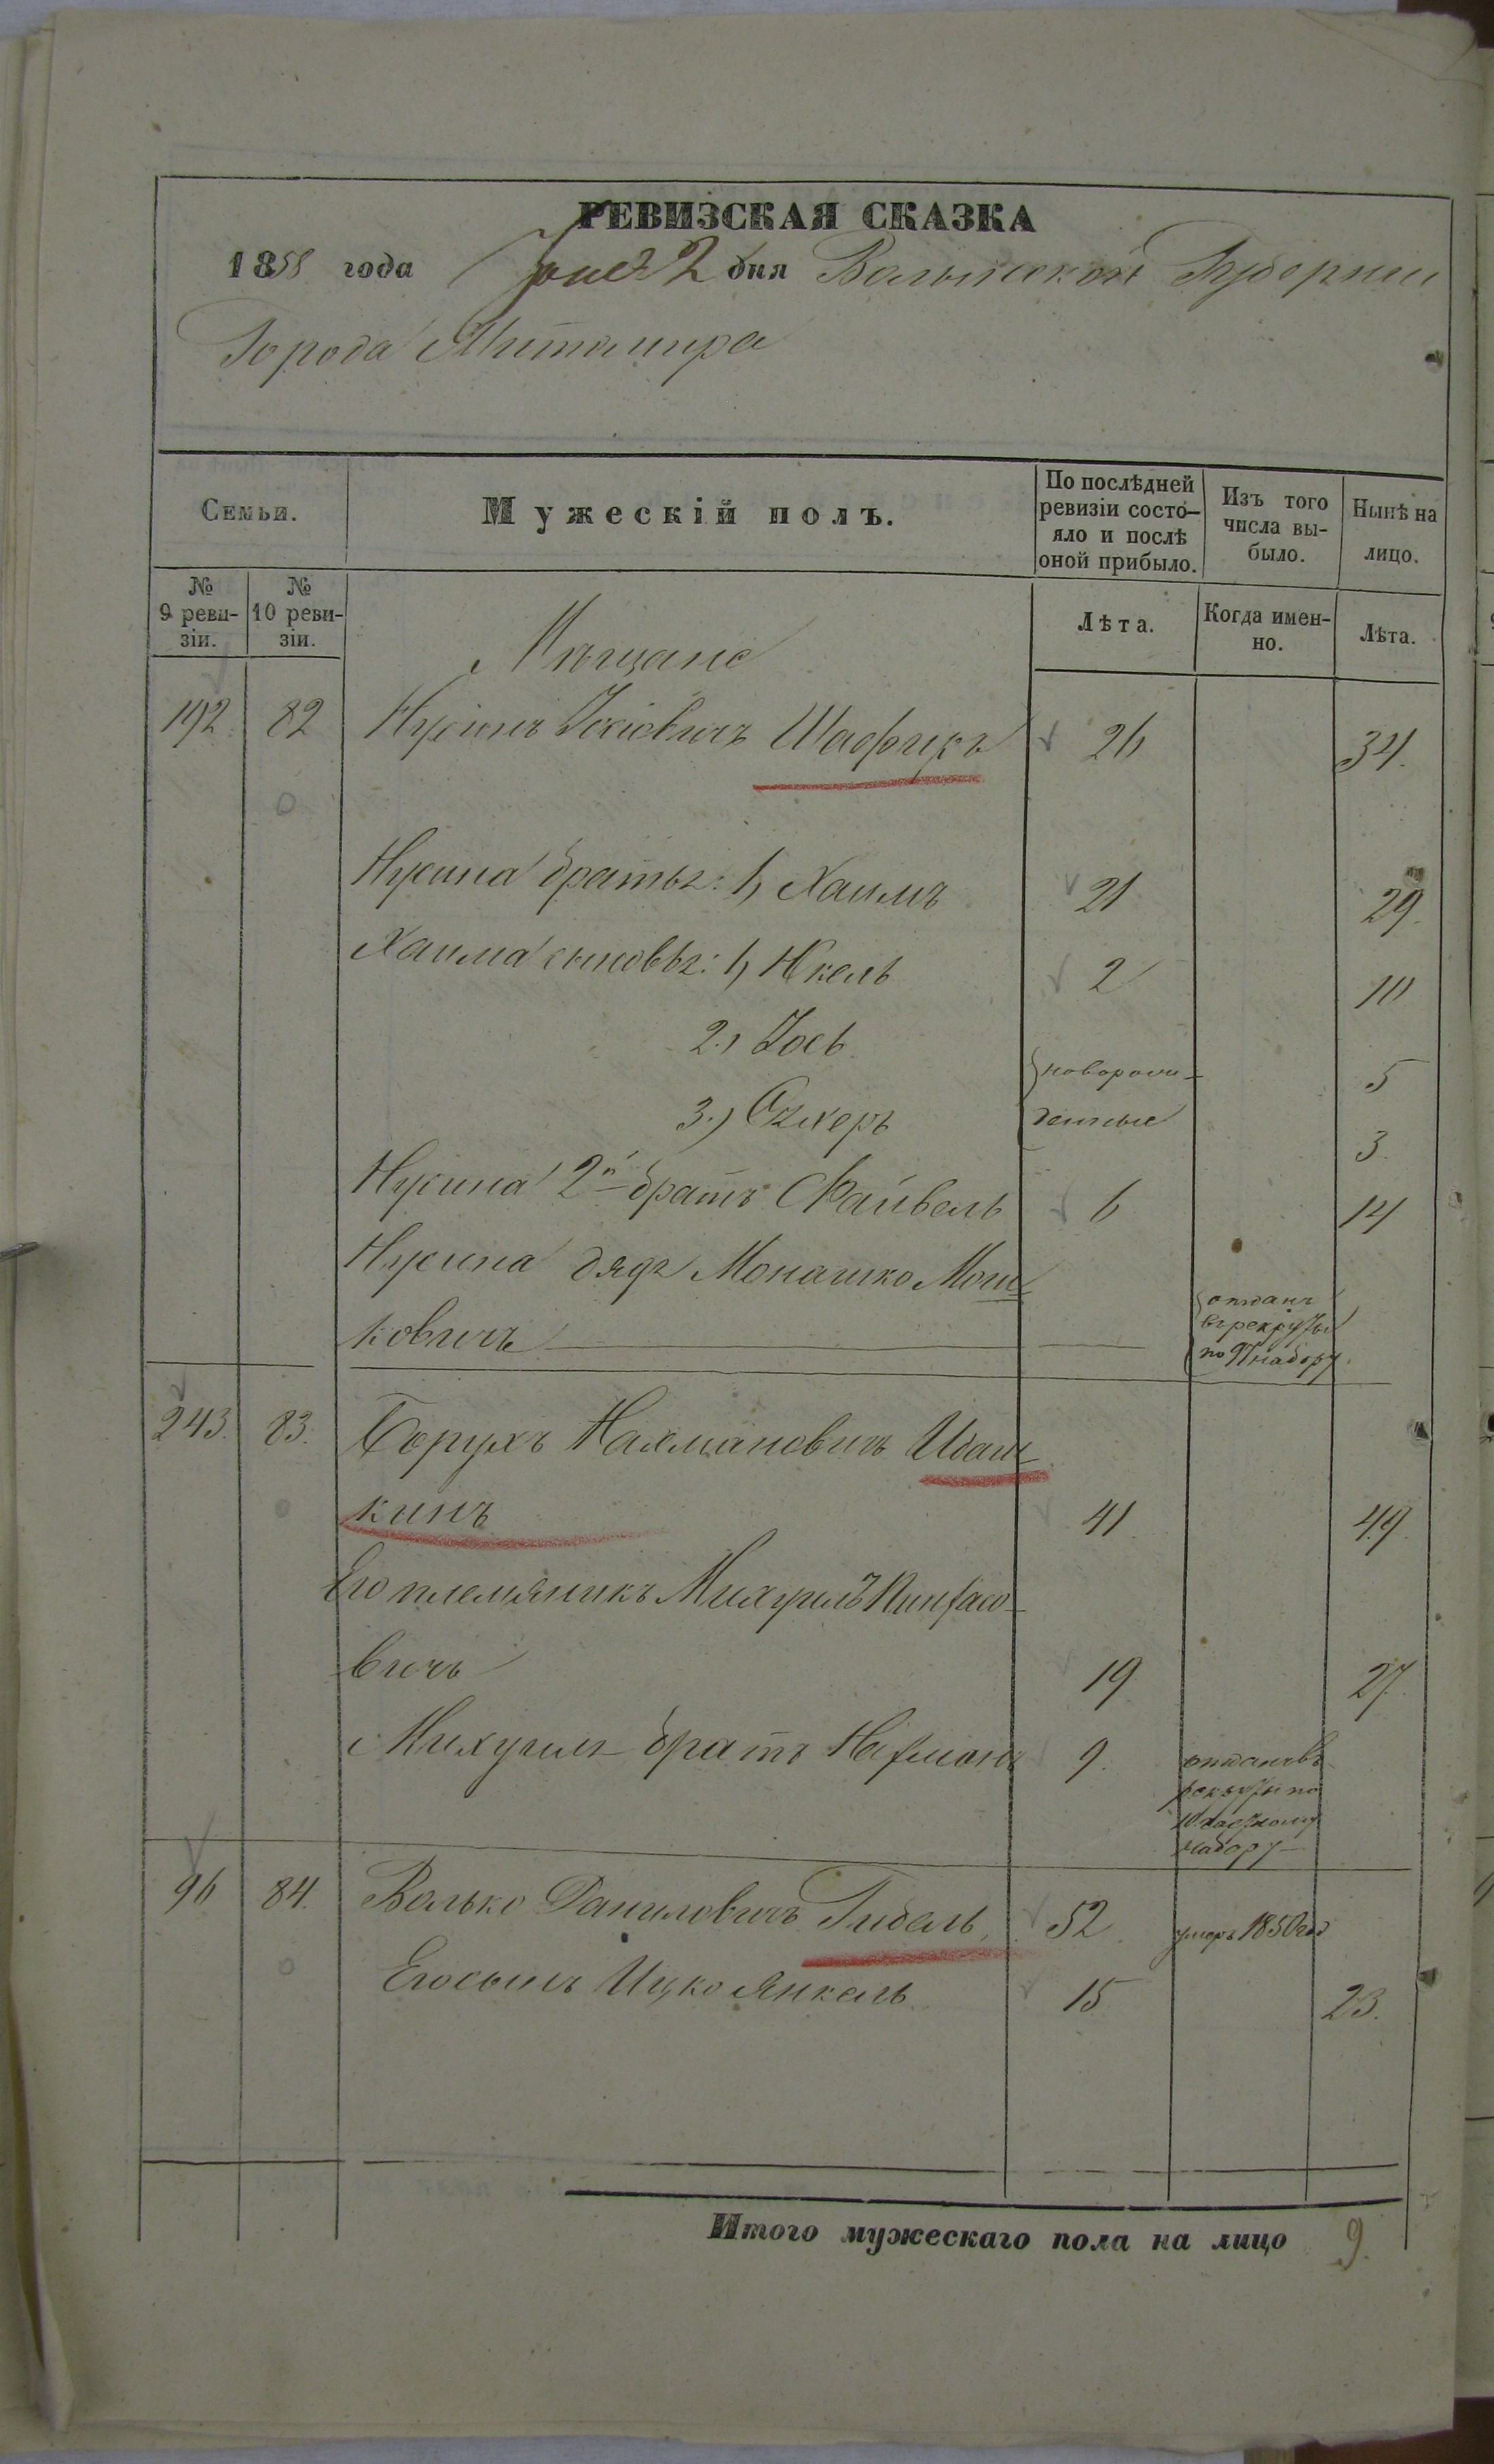 РЕВИЗСКАЯ СКАЗКА
1858 года Іюня 2 дня Волынской Губерніи
Города Житомира
Семьи.
Мужескій полъ.
По послѣдней ревизіи состо-яло и послѣ оной прибыло.
Изъ того числа вы-было.
Нынѣ на лицо.
№ 9 реви-зіи.
№ 10 реви-зіи.
Лѣта.
Когда имен-но.
Лѣта.
Мѣщане
192. 82 Нусинъ Іосіовичъ Шафикъ 26 34.
Нусина братья: 1, Хаимъ 21 29.
Хаима сыновья: 1, Нкель 2 10
2., Іось новорож- 5
3.) Озкеръ денные 3.
Нусина 2й братъ Файвель 6 14
Нусина дядя Монашко Мош-
ковичъ отданъ
в рекруты
по 9 набору.
243. 83. Борухъ Нахмановичъ Иваш-
кинъ 41 49.
Его племяникъ Михуилъ Пинfасо-
вичъ 19 27.
Михуила братъ Нафманъ 9. отданъ въ
рекруты по
10 частному
набору
96 84. Волько Даниловичъ Гидаль 52 умеръ 1850 год
Его сынъ Ицко Янкель 15 23.
Итого мужескаго пола на лицо 9.